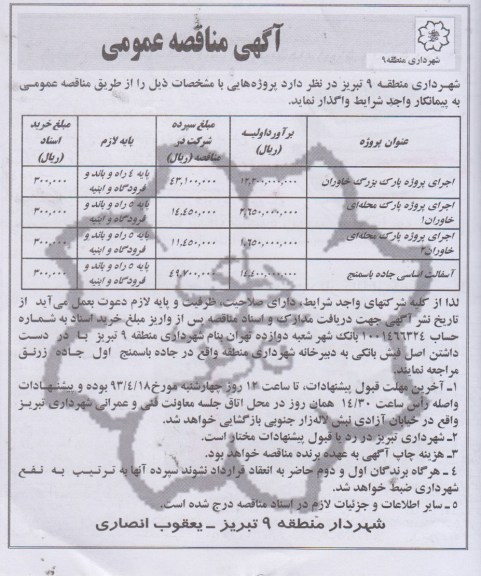 آگهی مناقصه عمومی
شهرداری منطقه ۹
شهرداری منطقه ۹ تبریز در نظر دارد پروژه‌هایی با مشخصات ذیل را از طریق مناقصه عمومی
به پیمانکار واجد شرایط واگذار نماید.
عنوان پروژه	برآورد اولیه (ریال)	مبلغ سپرده شرکت در مناقصه (ریال)	پایه لازم	مبلغ خرید اسناد (ریال)
اجرای پروژه پارک بزرگ خاوران	۱۲,۳۰۰,۰۰۰,۰۰۰	۴۳,۱۰۰,۰۰۰	پایه ۴ راه و باند و فرودگاه و ابنیه	۳۰۰,۰۰۰
اجرای پروژه پارک محله‌ای خاوران۱	۲,۶۵۰,۰۰۰,۰۰۰	۱۴,۴۵۰,۰۰۰	پایه ۵ راه و باند و فرودگاه و ابنیه	۳۰۰,۰۰۰
اجرای پروژه پارک محله‌ای خاوران۲	۱,۶۵۰,۰۰۰,۰۰۰	۱۱,۴۵۰,۰۰۰	پایه ۵ راه و باند و فرودگاه و ابنیه	۳۰۰,۰۰۰
آسفالت اساسی جاده باسمنج	۱۴,۴۰۰,۰۰۰,۰۰۰	۴۹,۷۰۰,۰۰۰	پایه ۵ راه و باند و فرودگاه و ابنیه	۳۰۰,۰۰۰
لذا از کلیه شرکتهای واجد شرایط، دارای صلاحیت، ظرفیت و پایه لازم دعوت بعمل می‌آید از
تاریخ نشر آگهی جهت دریافت مدارک و اسناد مناقصه پس از واریز مبلغ خرید اسناد به شماره
حساب ۱۰۰۱۴۶۶۳۲۴ بانک شهر شعبه دوازده تهران بنام شهرداری منطقه ۹ تبریز با در دست
داشتن اصل فیش بانکی به دبیرخانه شهرداری منطقه واقع در جاده باسمنج اول جاده زرنق
مراجعه نمایند.
۱ـ آخرین مهلت قبول پیشنهادات، تا ساعت ۱۲ روز چهارشنبه مورخ ۹۳/۴/۱۸ بوده و پیشنهادات
واصله رأس ساعت ۱۴/۳۰ همان روز در محل اتاق جلسه معاونت فنی و عمرانی شهرداری تبریز
واقع در خیابان آزادی نبش لاله‌زار جنوبی بازگشایی خواهد شد.
۲ـ شهرداری تبریز در رد یا قبول پیشنهادات مختار است.
۳ـ هزینه چاپ آگهی به عهده برنده مناقصه خواهد بود.
۴ ـ هرگاه برندگان اول و دوم حاضر به انعقاد قرارداد نشوند سپرده آنها به ترتیب به نفع
شهرداری ضبط خواهد شد.
۵ ـ سایر اطلاعات و جزئیات لازم در اسناد مناقصه درج شده است.
شهردار منطقه ۹ تبریز ـ یعقوب انصاری